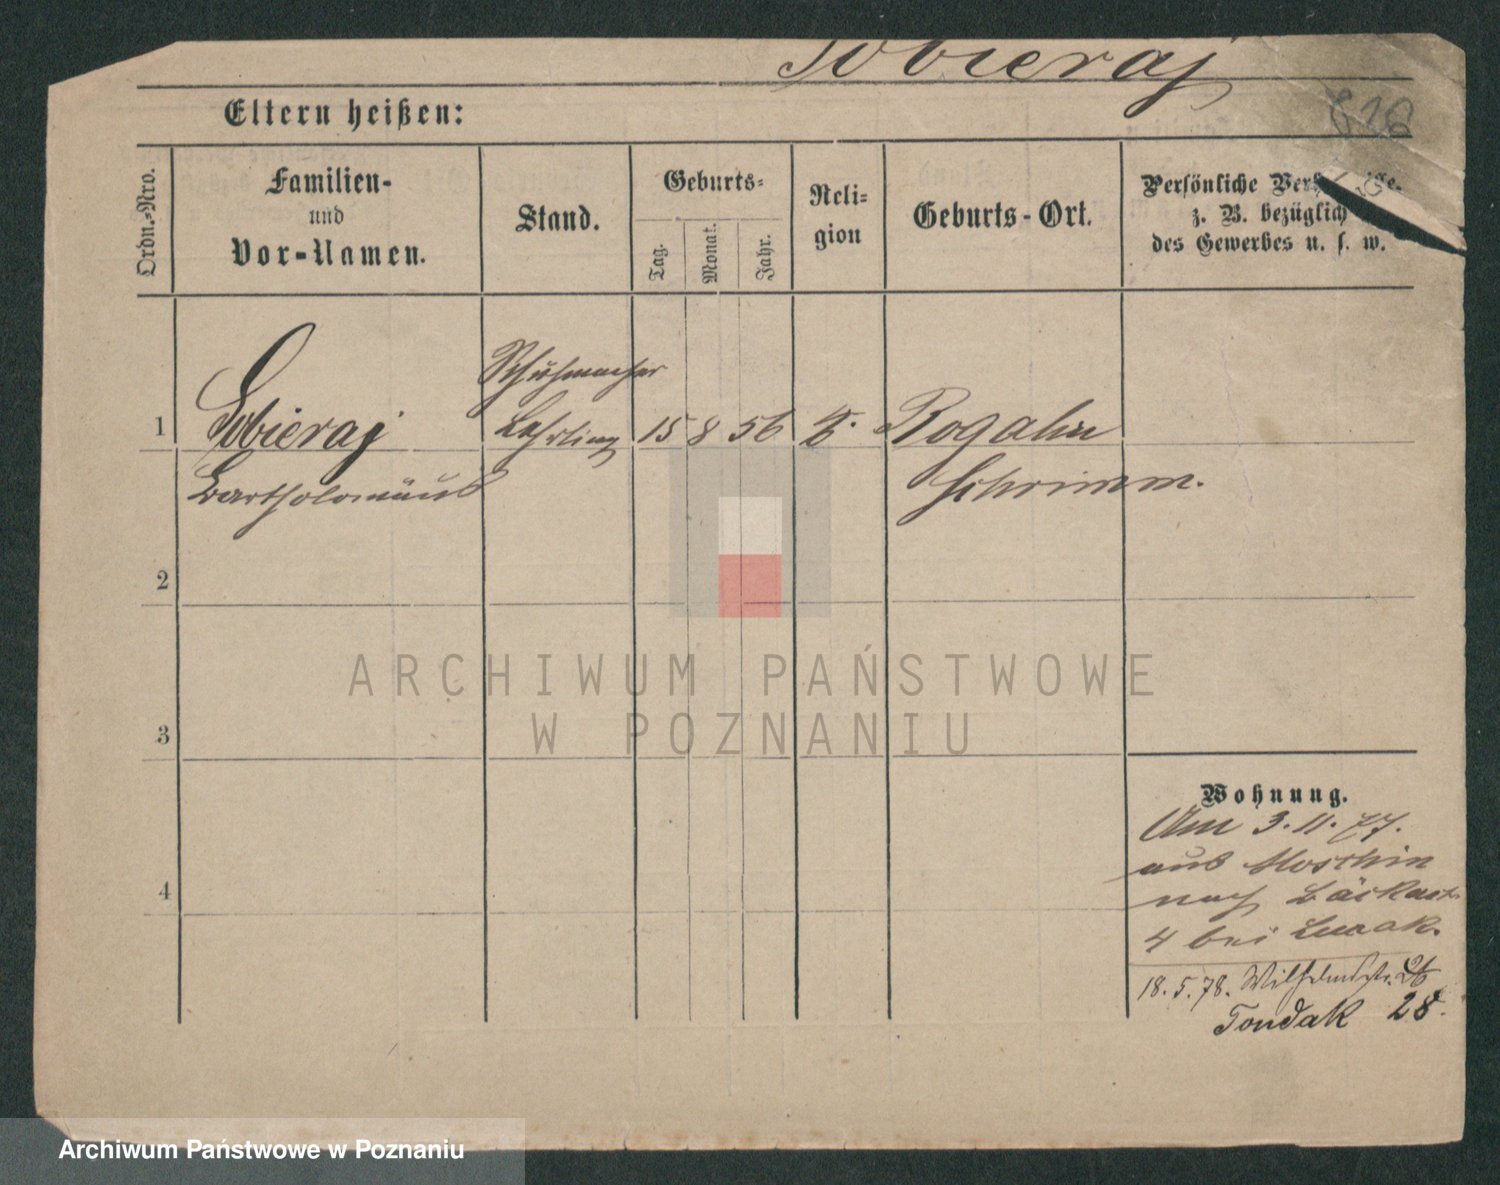 Sobieraj
Eltern heißen:
Ordn.-Nro.
Familien-
und
Vor-Namen.
Stand.
Geburts-
Tag.
Monat.
Jahr.
Reli-
gion
Geburts-Ort.
Persönliche
z. B. bezüglich
des Gewerbes u. s. w.
Schuhmacher
1 Sobieraj Lehrling 15 8 56 k. Rogalin
Bartholomäus Schrimm.
2
3
4
Wohnung.
Am 3.11.77.
aus Moschin
nach Bäckerst.
4 bei
18.5.78. Wilhelmstr. 26
Tondak 28.
ARCHIWUM PAŃSTWOWE
W POZNANIU
Archiwum Państwowe w Poznaniu